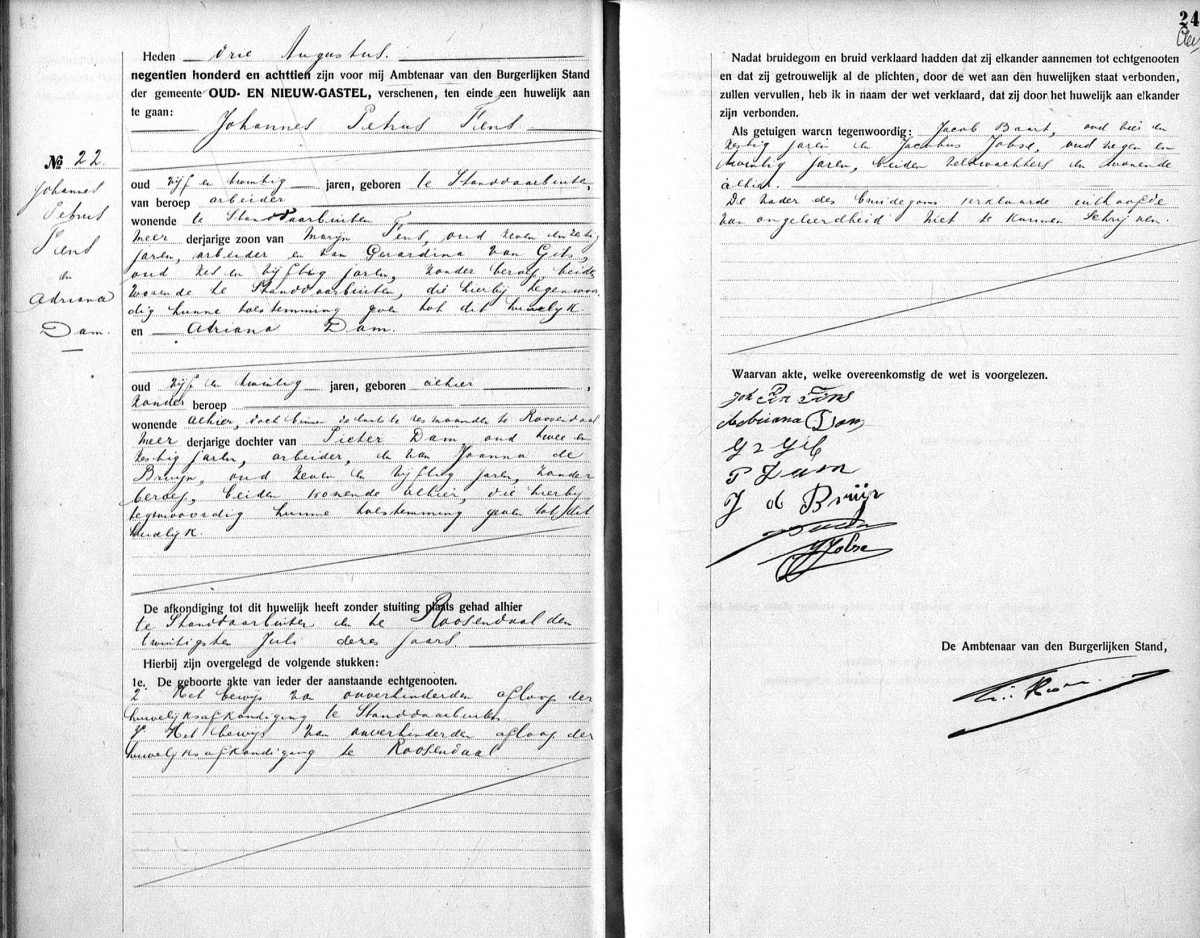 Heden drie Augustus.
negentien honderd en achttien zijn voor mij Ambtenaar van den Burgerlijken Stand
der gemeente OUD- EN NIEUW-GASTEL, verschenen, ten einde een huwelijk aan
te gaan: Johannes Petrus Fens
No 22.
Johannes
Petrus
Fens
en
Adriana
Dam.
oud vijf en twintig jaren, geboren te Standdaarbuiten,
van beroep arbeider
wonende te Standdaarbuiten
meer derjarige zoon van Marijn Fens, oud zeven en zestig
jaren, arbeider en van Gerardina van Gils,
oud zes en vijftig jaren, zonder beroep, beide
wonende te Standdaarbuiten, die hierbij tegenwoor
dig hunne toestemming geven tot dit huwelijk.
en Adriana Dam.
oud vijf en twintig jaren, geboren alhier,
zonder beroep
wonende alhier, doch binnen de laatste zes maanden te Roosendaal
meer derjarige dochter van Pieter Dam, oud twee en
zestig jaren, arbeider, en van Joanna de
Bruijn, oud zeven en vijftig jaren, zonder
beroep, beiden wonende alhier, die hierbij
tegenwoordig hunne toestemming geven tot dit
huwelijk.
De afkondiging tot dit huwelijk heeft zonder stuiting plaats gehad alhier
te Standdaarbuiten en te Roosendaal den
twintigsten Juli dezes jaars.
Hierbij zijn overgelegd de volgende stukken:
1e. De geboorte akte van ieder der aanstaande echtgenooten.
2 Het bewijs van onverhinderden afloop der
huwelijksafkondiging te Standdaarbuiten
3 Het bewijs van onverhinderden afloop der
huwelijksafkondiging te Roosendaal
24
Nadat bruidegom en bruid verklaard hadden dat zij elkander aannemen tot echtgenooten
en dat zij getrouwelijk al de plichten, door de wet aan den huwelijken staat verbonden,
zullen vervullen, heb ik in naam der wet verklaard, dat zij door het huwelijk aan elkander
zijn verbonden.
Als getuigen waren tegenwoordig: Jacob Baart, oud vier en
zestig jaren en Jacobus Jobse, oud negen en
twintig jaren, beiden veldwachters en wonende
alhier.
De vader des bruidegoms verklaarde uit hoofde
van ongeleerdheid niet te kunnen schrijven.
Waarvan akte, welke overeenkomstig de wet is voorgelezen.
Joh Pet Fens
Adriana Dam
G v Gils
P Dam
J de Bruijn
J Jobse
De Ambtenaar van den Burgerlijken Stand,